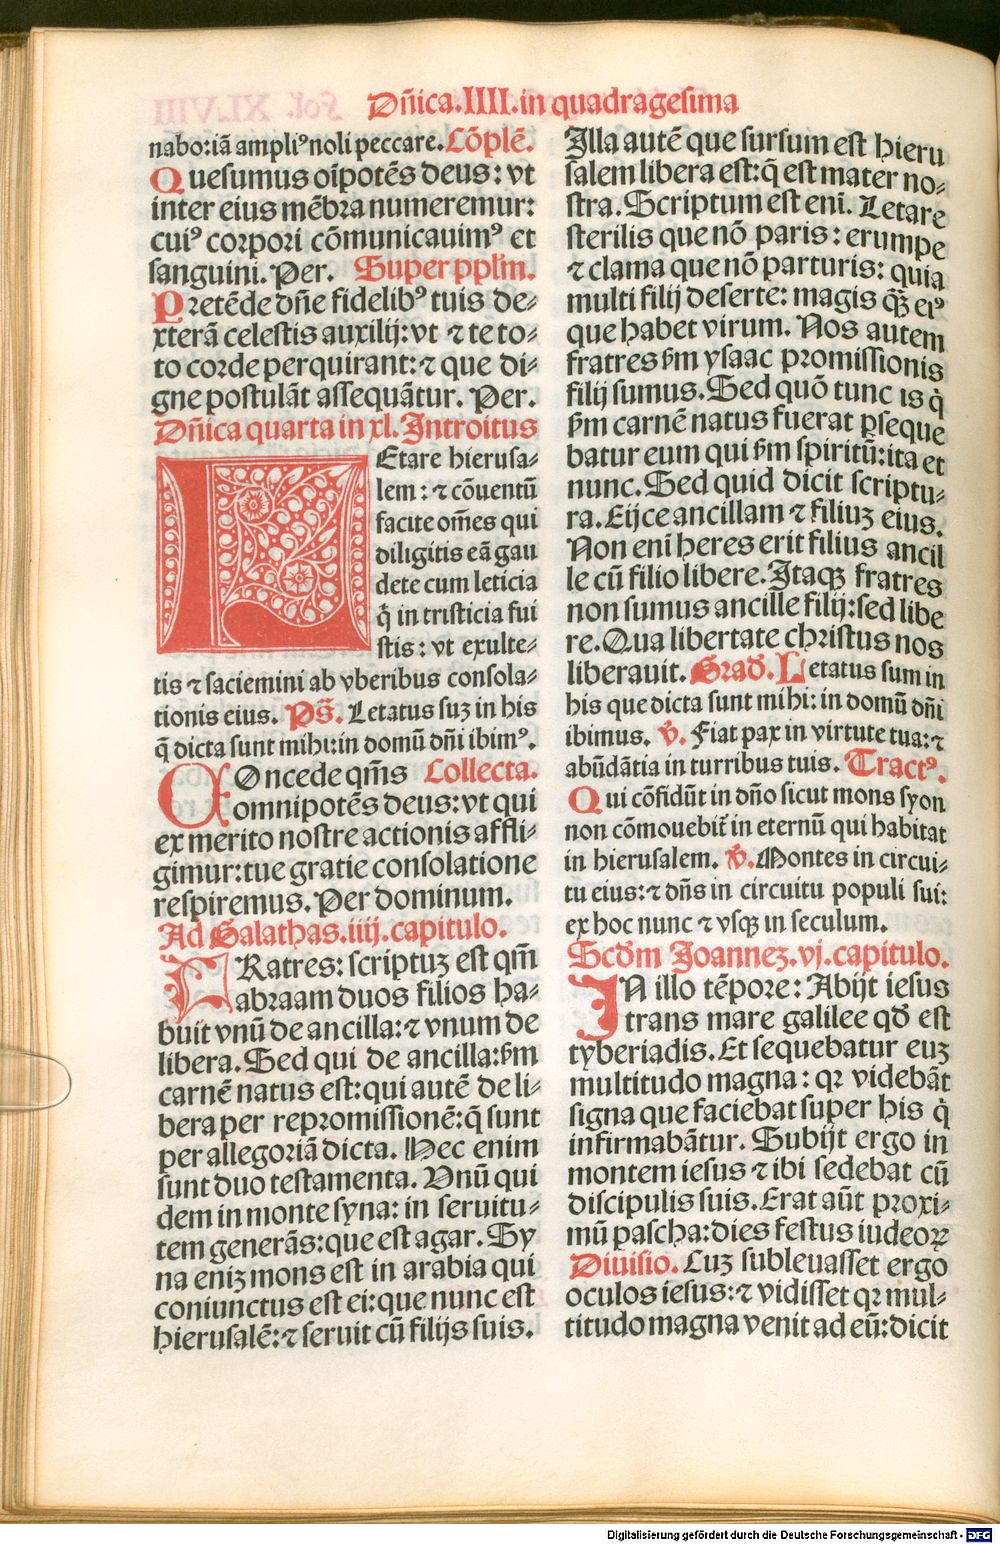 Dñica.IIII.in quadragesima
nabo:iã ampliꝰ noli peccare. Cõplẽ.
Quesumus oĩpotẽs deus: vt
inter eius mẽbra numeremur:
cuiꝰ corpori cõmunicauimꝰ et
sanguini. Per. Super ppl̃m.
Pretẽde dñe fidelibꝰ tuis de⸗
xterã celestis auxilij: vt ⁊ te to⸗
to corde perquirant: ⁊ que di⸗
gne postulãt assequãtur. Per.
Dñica quarta in xl. Introitus
LEtare hierusa⸗
lem: ⁊ cõuentũ
facite om̃es qui
diligitis eã gau
dete cum leticia
q̃ in tristicia fui
stis: vt exulte⸗
tis ⁊ saciemini ab vberibus consola⸗
tionis eius. Ps̃. Letatus suꝫ in his
q̃ dicta sunt mihi: in domũ dñi ibimꝰ.
COncede qm̃s Collecta.
omnipotẽs deus: vt qui
ex merito nostre actionis affli⸗
gimur: tue gratie consolatione
respiremus. Per dominum.
Ad Galathas. iiij. capitulo.
FRatres: scriptuꝫ est qm̃
abraam duos filios ha⸗
buit vnũ de ancilla: ⁊ vnum de
libera. Sed qui de ancilla: ẜm
carnẽ natus est: qui autẽ de li⸗
bera per repromissionẽ: q̃ sunt
per allegoriã dicta. Hec enim
sunt duo testamenta. Vnũ qui
dem in monte syna: in seruitu⸗
tem generãs: que est agar. Sy
na eniꝫ mons est in arabia qui
coniunctus est ei: que nunc est
hierusalẽ: ⁊ seruit cũ filijs suis.
Illa autẽ que sursum est hieru
salem libera est: q̃ est mater no⸗
stra. Scriptum est enĩ. Letare
sterilis que nõ paris: erumpe
⁊ clama que nõ parturis: quia
multi filij deserte: magis qꝫ̃ eiꝰ
que habet virum. Nos autem
fratres ẜm ysaac promissionis
filij sumus. Sed quõ tunc is q̇
ẜm carnẽ natus fuerat ꝑseque
batur eum qui ẜm spiritũ: ita et
nunc. Sed quid dicit scriptu⸗
ra. Eijce ancillam ⁊ filiuꝫ eius.
Non enĩ heres erit filius ancil
le cũ filio libere. Itaqꝫ fratres
non sumus ancille filij: sed libe
re. Qua libertate christus nos
liberauit. Grad̃. Letatus sum in
his que dicta sunt mihi: in domũ dñi
ibimus. ℣. Fiat pax in virtute tua: ⁊
abũdãtia in turribus tuis. Tractꝰ.
Qui cõfidũt in dño sicut mons syon
non cõmouebit̃ in eternũ qui habitat
in hierusalem. ℣. Montes in circui⸗
tu eius: ⁊ dñs in circuitu populi sui:
ex hoc nunc ⁊ vsqꝫ in seculum.
Scd̃m Joannez. vj. capitulo.
IN illo tẽpore: Abijt iesus
trans mare galilee qd̃ est
tyberiadis. Et sequebatur euꝫ
multitudo magna: qꝛ videbãt
signa que faciebat super his q̇
infirmabãtur. Subijt ergo in
montem iesus ⁊ ibi sedebat cũ
discipulis suis. Erat aũt proxi⸗
mũ pascha: dies festus iudeoꝝ
Diuisio. Cuꝫ subleuasset ergo
oculos iesus: ⁊ vidisset qꝛ mul⸗
titudo magna venit ad eũ: dicit
Digitalisierung gefördert durch die Deutsche Forschungsgemeinschaft - DFG